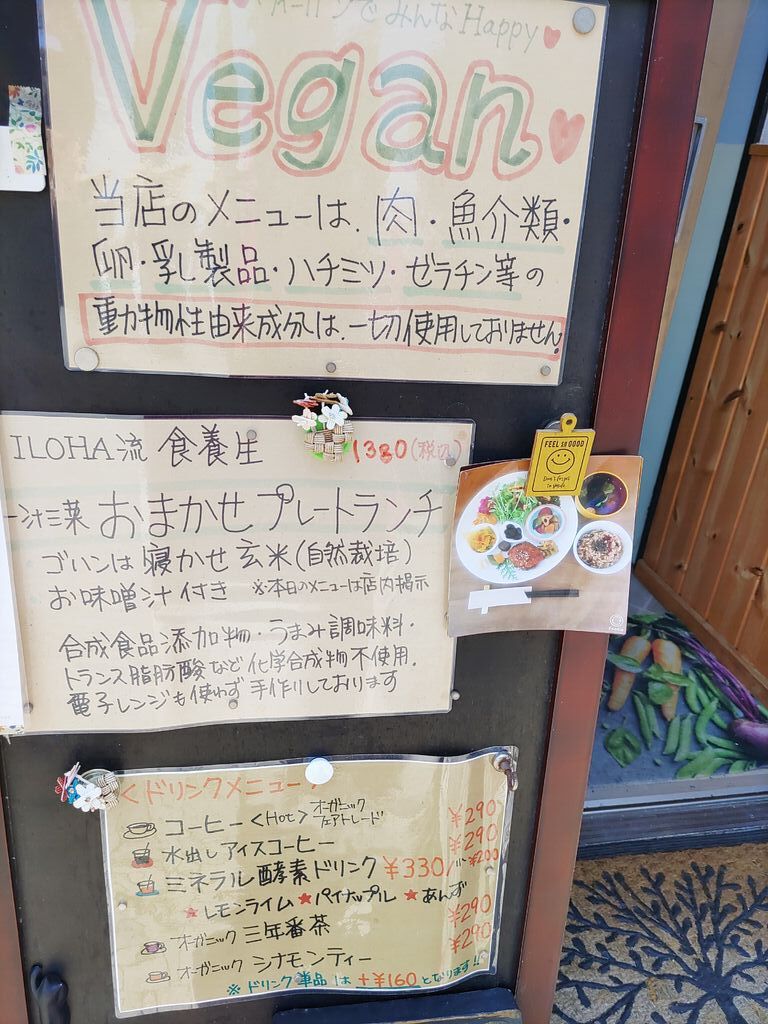 でみんなHappy
Vegan
当店のメニューは、肉・魚介類・
卵・乳製品・ハチミツ・ゼラチン等の
動物性由来成分は、一切使用しておりません
ILOHA流 食養生 1380(税込)
一汁三菜 おまかせプレートランチ
ゴハンは寝かせ玄米(自然栽培)
お味噌汁付き ※本日のメニューは店内掲示
合成食品添加物・うまみ調味料・
トランス脂肪酸など化学合成物不使用.
電子レンジも使わず 手作りしております
FEEL SO GOOD
Don't forget
to smile
<ドリンクメニュー>
コーヒー<Hot> オーガニック フェアトレード ¥290
水出しアイスコーヒー ¥290
ミネラル酵素ドリンク ¥330/ハーフ¥200
★レモンライム ★パイナップル ★あんず
オーガニック 三年番茶 ¥290
オーガニック シナモンティー ¥290
※ドリンク単品は+¥160となります!!